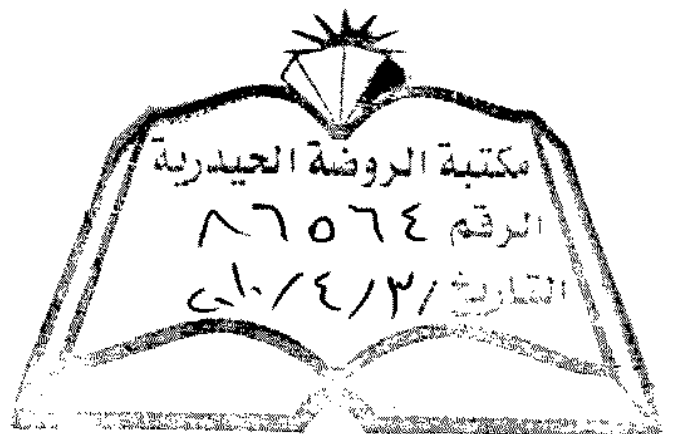 مكتبة الروضة الحيدرية
الرقم ٨٦٥٦٤
التاريخ / ٣ / ٤ / ٢٠١٠